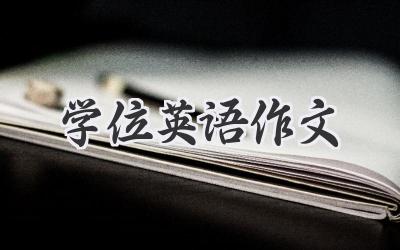 学位英语作文